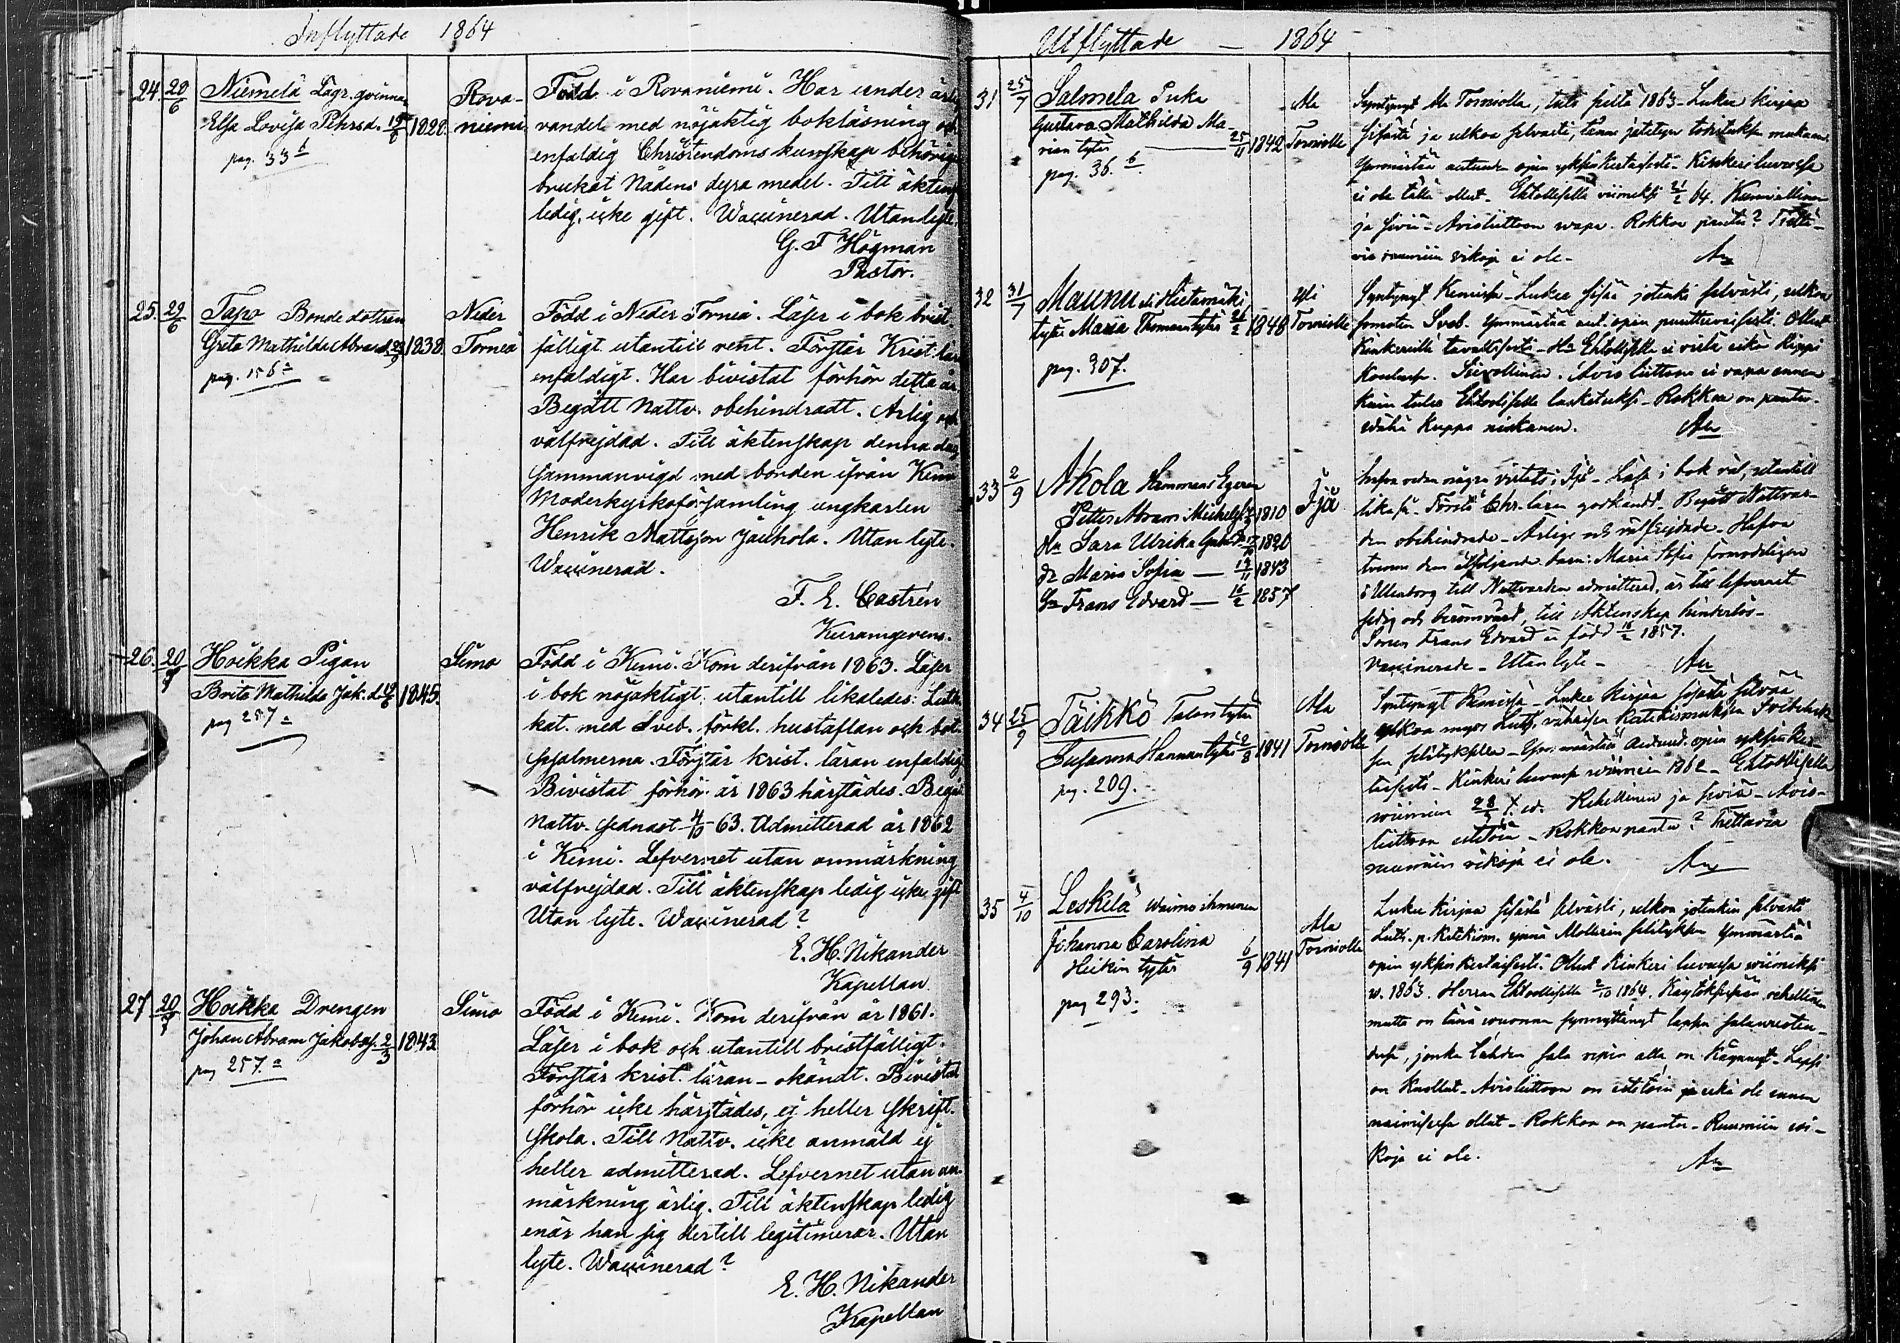 Inflyttade 1864
24. 28/6 Niemelä Lägr. qvinna
Elsa Lovisa Pehrsd. 1828
pag. 33 b
Rova-
niemi
Född i Rovaniemi. Har under ärlig
vandel med nöjaktig bokläsning och
enfaldig Christendoms kunskap behörigen
brukat Nådens dyra medel. Till äkten-
ledig, icke gift. Waccinerad. Utan lyte.
G. F. Högman
Pastor.
25. 29/6 Tapio Bonde dottren
Greta Mathilda Abrams d. 1838
pag. 156 a
Neder
Torneå
Född i Neder Torneå. Läser i bok brist-
fälligt utantill rent. Förstår Krist. läran
enfaldigt. Har bivistat förhör detta år
Begått Nattv. obehindradt. Ärlig och
välfrejdad. Till äktenskap denna dag
sammanvigd med bonden ifrån Kemi
Moderkyrkoförsamling ungkarlen
Henrik Mattsson Jauhola. Utan lyte.
Waccinerad.
F. E. Castrén
26. Hoikka Pigan
Brita Mathilda Jak. d. 1845.
pag 257 a
Simo
Född i Kemi. Kom derifrån 1863. Läser
i bok nöjaktigt, utantill likaledes: Luth.
kat. med Sveb. förkl. hustaflan och bot-
psalmerna. Förstår krist. läran enfaldigt
Bivistat förhör år 1863 härstädes. Begått
Nattv. sednast -63. Admitterad år 1862
i Kemi. Lefvernet utan anmärkning
välfrejdad. Till äktenskap ledig icke gift
Utan lyte. Waccinerad?
E. H. Nikander
Kapellan
27. Hoikka Drengen
Johan Abram Jakobss. 2/3 1843
pag 257. a
Simo
Född i Kemi. Kom derifrån år 1861.
Läser i bok och utantill bristfälligt.
Förstår krist. läran - okändt. Bivistat
förhör icke härstädes, ej heller skrift-
skola. Till Nattv. icke anmäld ej
heller admitterad. Lefvernet utan an-
märkning ärlig. Till äktenskap ledig
enär han sig dertill legitimerar. Utan
lyte. Waccinerad?
E. H. Nikander
Kapellan
Utflyttade - 1864
31 25/7 Salmela Piika
Gustava Mathilda Ma-
rian tytär 25/11 1842
pag. 36. b
Ala
Torniolle
Syntynyt Ala Torniolla, tuli sieltä 1863. Lukee kirjaa
sisästä ja ulkoa selvästi,
Ymmärtää autuuden opin yksinkertaisesti. Kinkeri luvussa
ei ole täällä ollut. Ehtoollisella viimeksi 64. Kunniallinen
ja siviä. Avioliittoon vapa. Rokkoa pantu?
via ruumiin vikoja ei ole.
32 31/7 Maunu eli Hietamäki
tytär Maria Thomaan tytär 1848
pag. 307.
Yli
Torniolle
Syntynyt Kemissä. Lukee sisää jotenki selvästi, ulkoa
Ymmärtää aut. opin puuttuvaisesti. Ollut
Kinkerillä tavallisesti. H:n Ehtoollisella ei vielä eikä Rippi
Koulussa. Siivollinen. Avio liittoon ei vapa ennen
kuin tulee Ehtoolliselle lasketuksi. Rokkoa on pantu.
Au
33 2/9 Akola Hemmans Egaren
Petter Abram Michelss. 1810
Hu Sara Ulrika 1820
Dr Maria Sofia 1843
Sn Frans Edvard 16/2 1857
Ijå
Läsa i bok väl, utantill
Förstå Chr. läran godkändt. Begått Nattvar-
den obehindrade. Ärlige och välfrejdade. Hafva
tvenne dem åtföljande barn: Maria Sofia förmodligen
i Uleåborg till Nattvarden admitterad, är till lefvernet
sedig och berömvärd, till Äktenskap hinderlös.
Sonen Frans Edvard är född 16/2 1857.
Vaccinerade. Utan lyte.
Au
34 25/9 Täikkö Talon tytär
Susanna Hannun tytär 2/8 1841
pag. 209.
Ala
Torniolle
Syntynyt Kemissä. Lukee kirjaa sisästä selvää
ulkoa myös Luth. vähäisen Katekismuksen
opin yksinker-
taisesti. Kinkeri luvussa viimein 1862. Ehtoollisella
viimein Rehellinen ja siviä. Avio-
liittoon esteetöin. Rokkoa pantu?
ruumiin vikoja ei ole.
35 4/10 Leskelä Waimo ihminen
Johanna Carolina
Heikin tytär 6/9 1841
pag 293.
Ala
Torniolle
Lukee kirjaa sisästä selvästi, ulkoa jotenkin selvästi
Luth. p. Katekism. ynnä Möllerin selityksen Ymmärtää
opin yksinkertaisesti. Ollut Kinkeri luvussa viimeksi
w. 1863. Herran Ehtoollisella 2/10 1864. Käytöksessään rehellinen
mutta on tänä vuonna synnyttänyt lapsen salavuoteu-
desta, jonka tähden
on kuollut. Avioliittoon on esteetöin ja eikä ole ennen
naimisissa ollut. Rokkoa on pantu. Ruumiin vi-
koja ei ole.